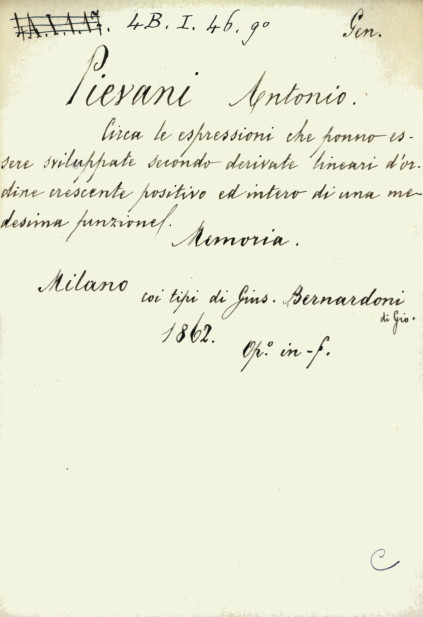 4B. I. 46. 9º Gen.
Pievani Antonio.
Circa le espressioni che ponno es-
sere sviluppate secondo derivate lineari d'or-
dine crescente positivo ed intero di una me-
desima funzione.
Memoria.
Milano coi tipi di Gius. Bernardoni
di Gio.
1862.
Op.º in-f.
C